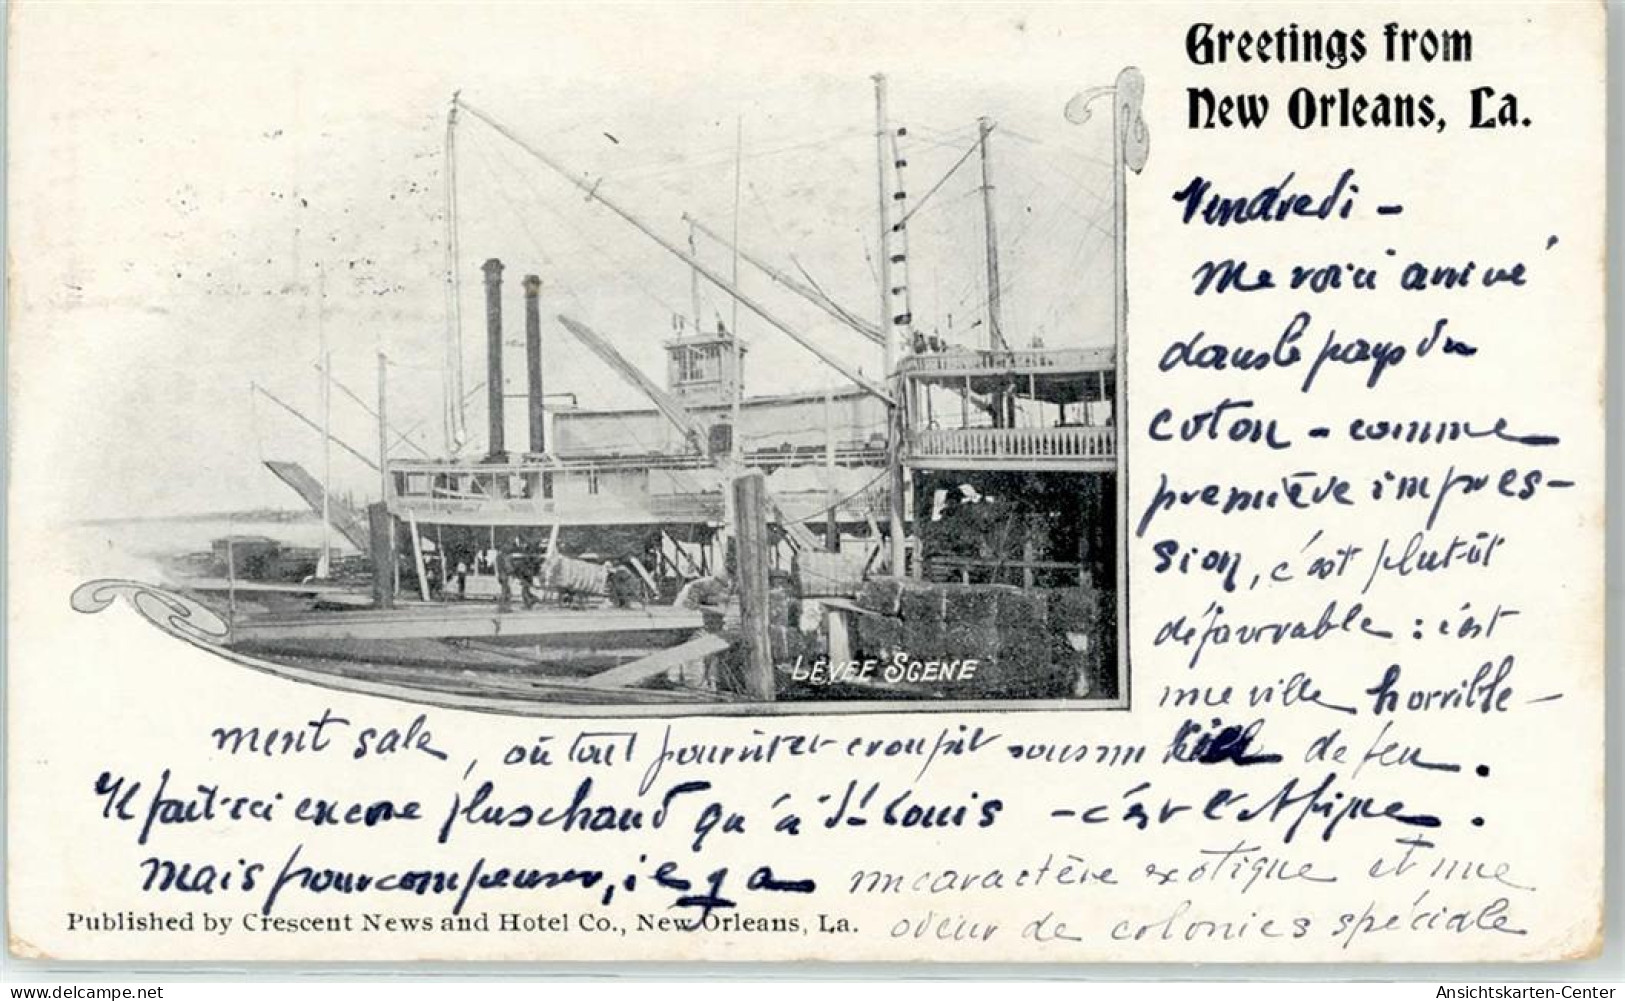 Greetings from
New Orleans, La.
Vendredi -
Me voici arrivé
dans le pays du
coton - comme
première impres-
sion, c'est plutôt
défavorable : c'est
une ville horrible-
ment sale, où tout pourrit et croupit sous un ciel de feu.
Il fait ici encore plus chaud qu'à St Louis - c'est l'Afrique.
Mais pour compenser, il y a un caractère exotique et une
odeur de colonies spéciale
LEVEE SCENE
Published by Crescent News and Hotel Co., New Orleans, La.
delcampe.net
Ansichtskarten-Center